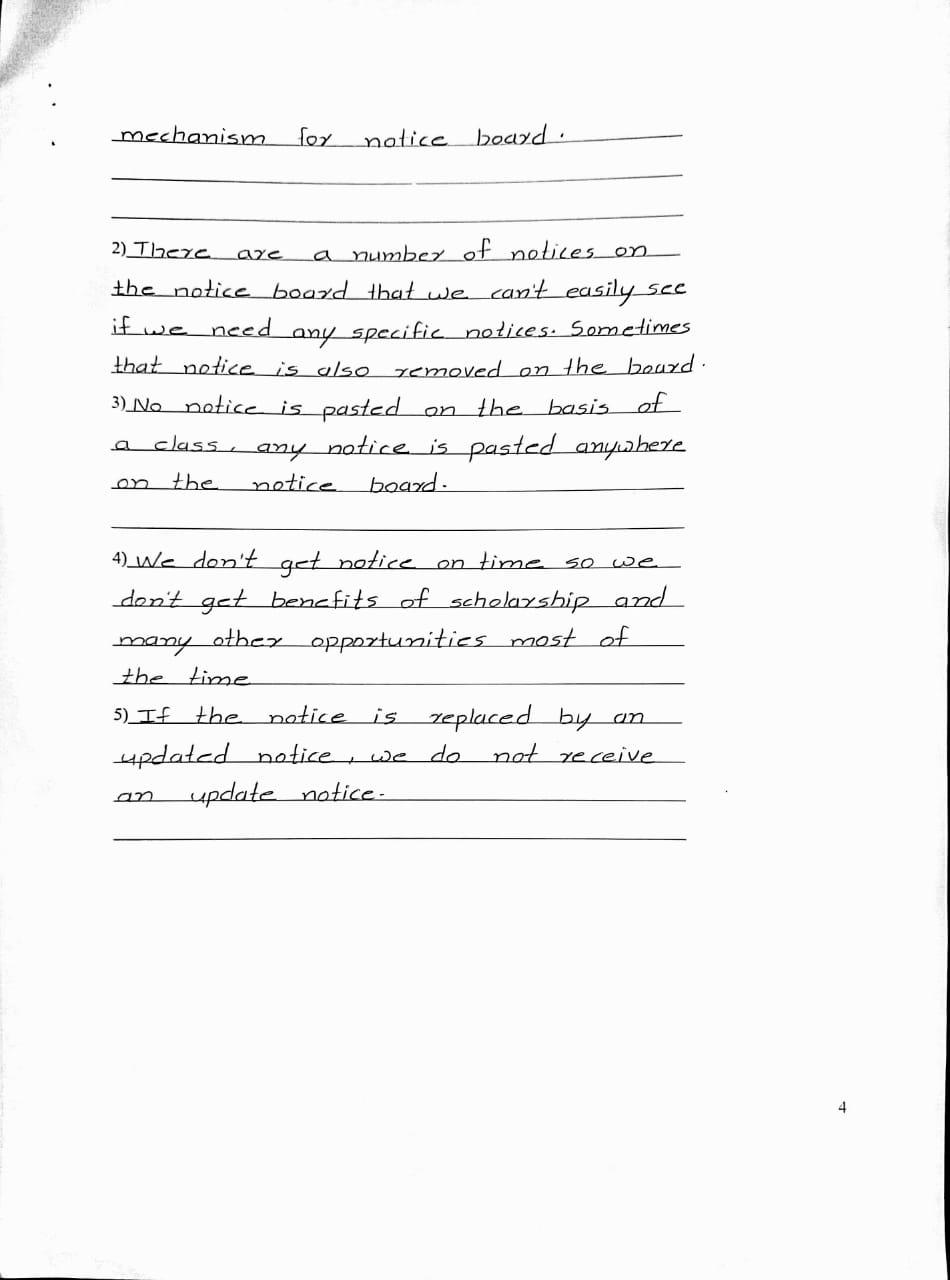 mechanism for notice board.
2) There are a number of notices on
the notice board that we can't easily see
if we need any specific notices. Sometimes
that notice is also removed on the board.
3) No notice is pasted on the basis of
a class, any notice is pasted anywhere
on the notice board.
4) We don't get notice on time so we
don't get benefits of scholarship and
many other opportunities most of
the time
5) If the notice is replaced by an
updated notice, we do not receive
an update notice.
4